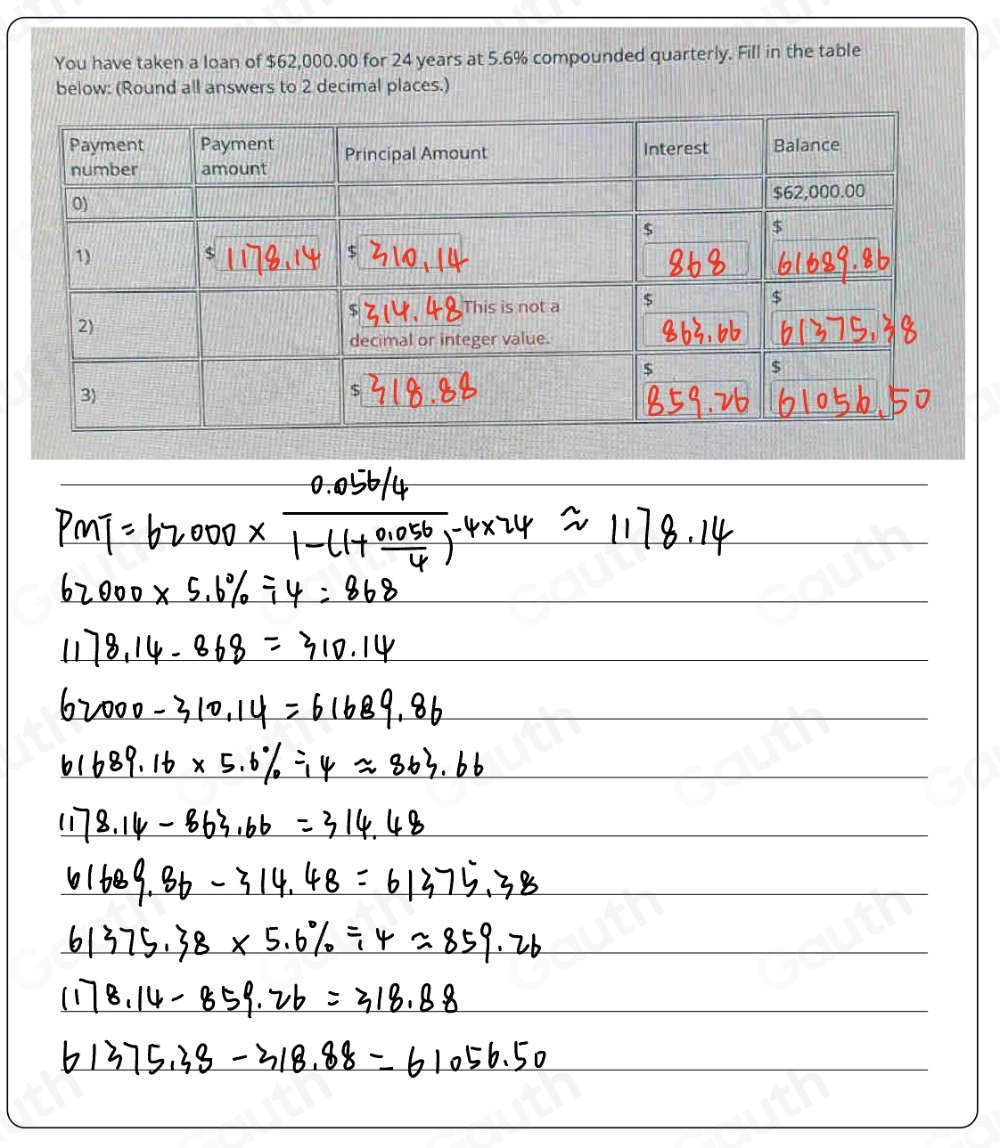 You have taken a loan of $62,000.00 for 24 years at 5.6% compounded quarterly. Fill in the table
below: (Round all answers to 2 decimal places.)
Payment number Payment amount Principal Amount Interest Balance
0) $62,000.00
1) $ 1178.14 $ 310.14 $ 868 $ 61689.86
2) $ 314.48 This is not a decimal or integer value. $ 863.66 $ 61375.38
3) $ 318.88 $ 859.26 $ 61056.50
PMT = 62000 × (0.056/4) / (1-(1+0.056/4)^-4×24) ≈ 1178.14
62000 × 5.6% ÷ 4 = 868
1178.14 - 868 = 310.14
62000 - 310.14 = 61689.86
61689.16 × 5.6% ÷ 4 ≈ 863.66
1178.14 - 863.66 = 314.48
61689.86 - 314.48 = 61375.38
61375.38 × 5.6% ÷ 4 ≈ 859.26
1178.14 - 859.26 = 318.88
61375.38 - 318.88 = 61056.50
Gauth